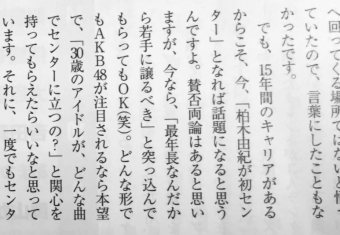 へ回ってくる場所ではないと悟っ
ていたので、言葉にしたこともな
かったです。
でも、15年間のキャリアがある
からこそ、今、「柏木由紀が初セン
ター」となれば話題になると思う
んですよ。賛否両論はあると思い
ますが、今なら、「最年長なんだか
ら若手に譲るべき」と突っ込んで
もらってもOK(笑)。どんな形で
もAKB48が注目されるなら本望
で、「30歳のアイドルが、どんな曲
でセンターに立つの?」と関心を
持ってもらえたらいいなと思って
います。それに、一度でもセンタ